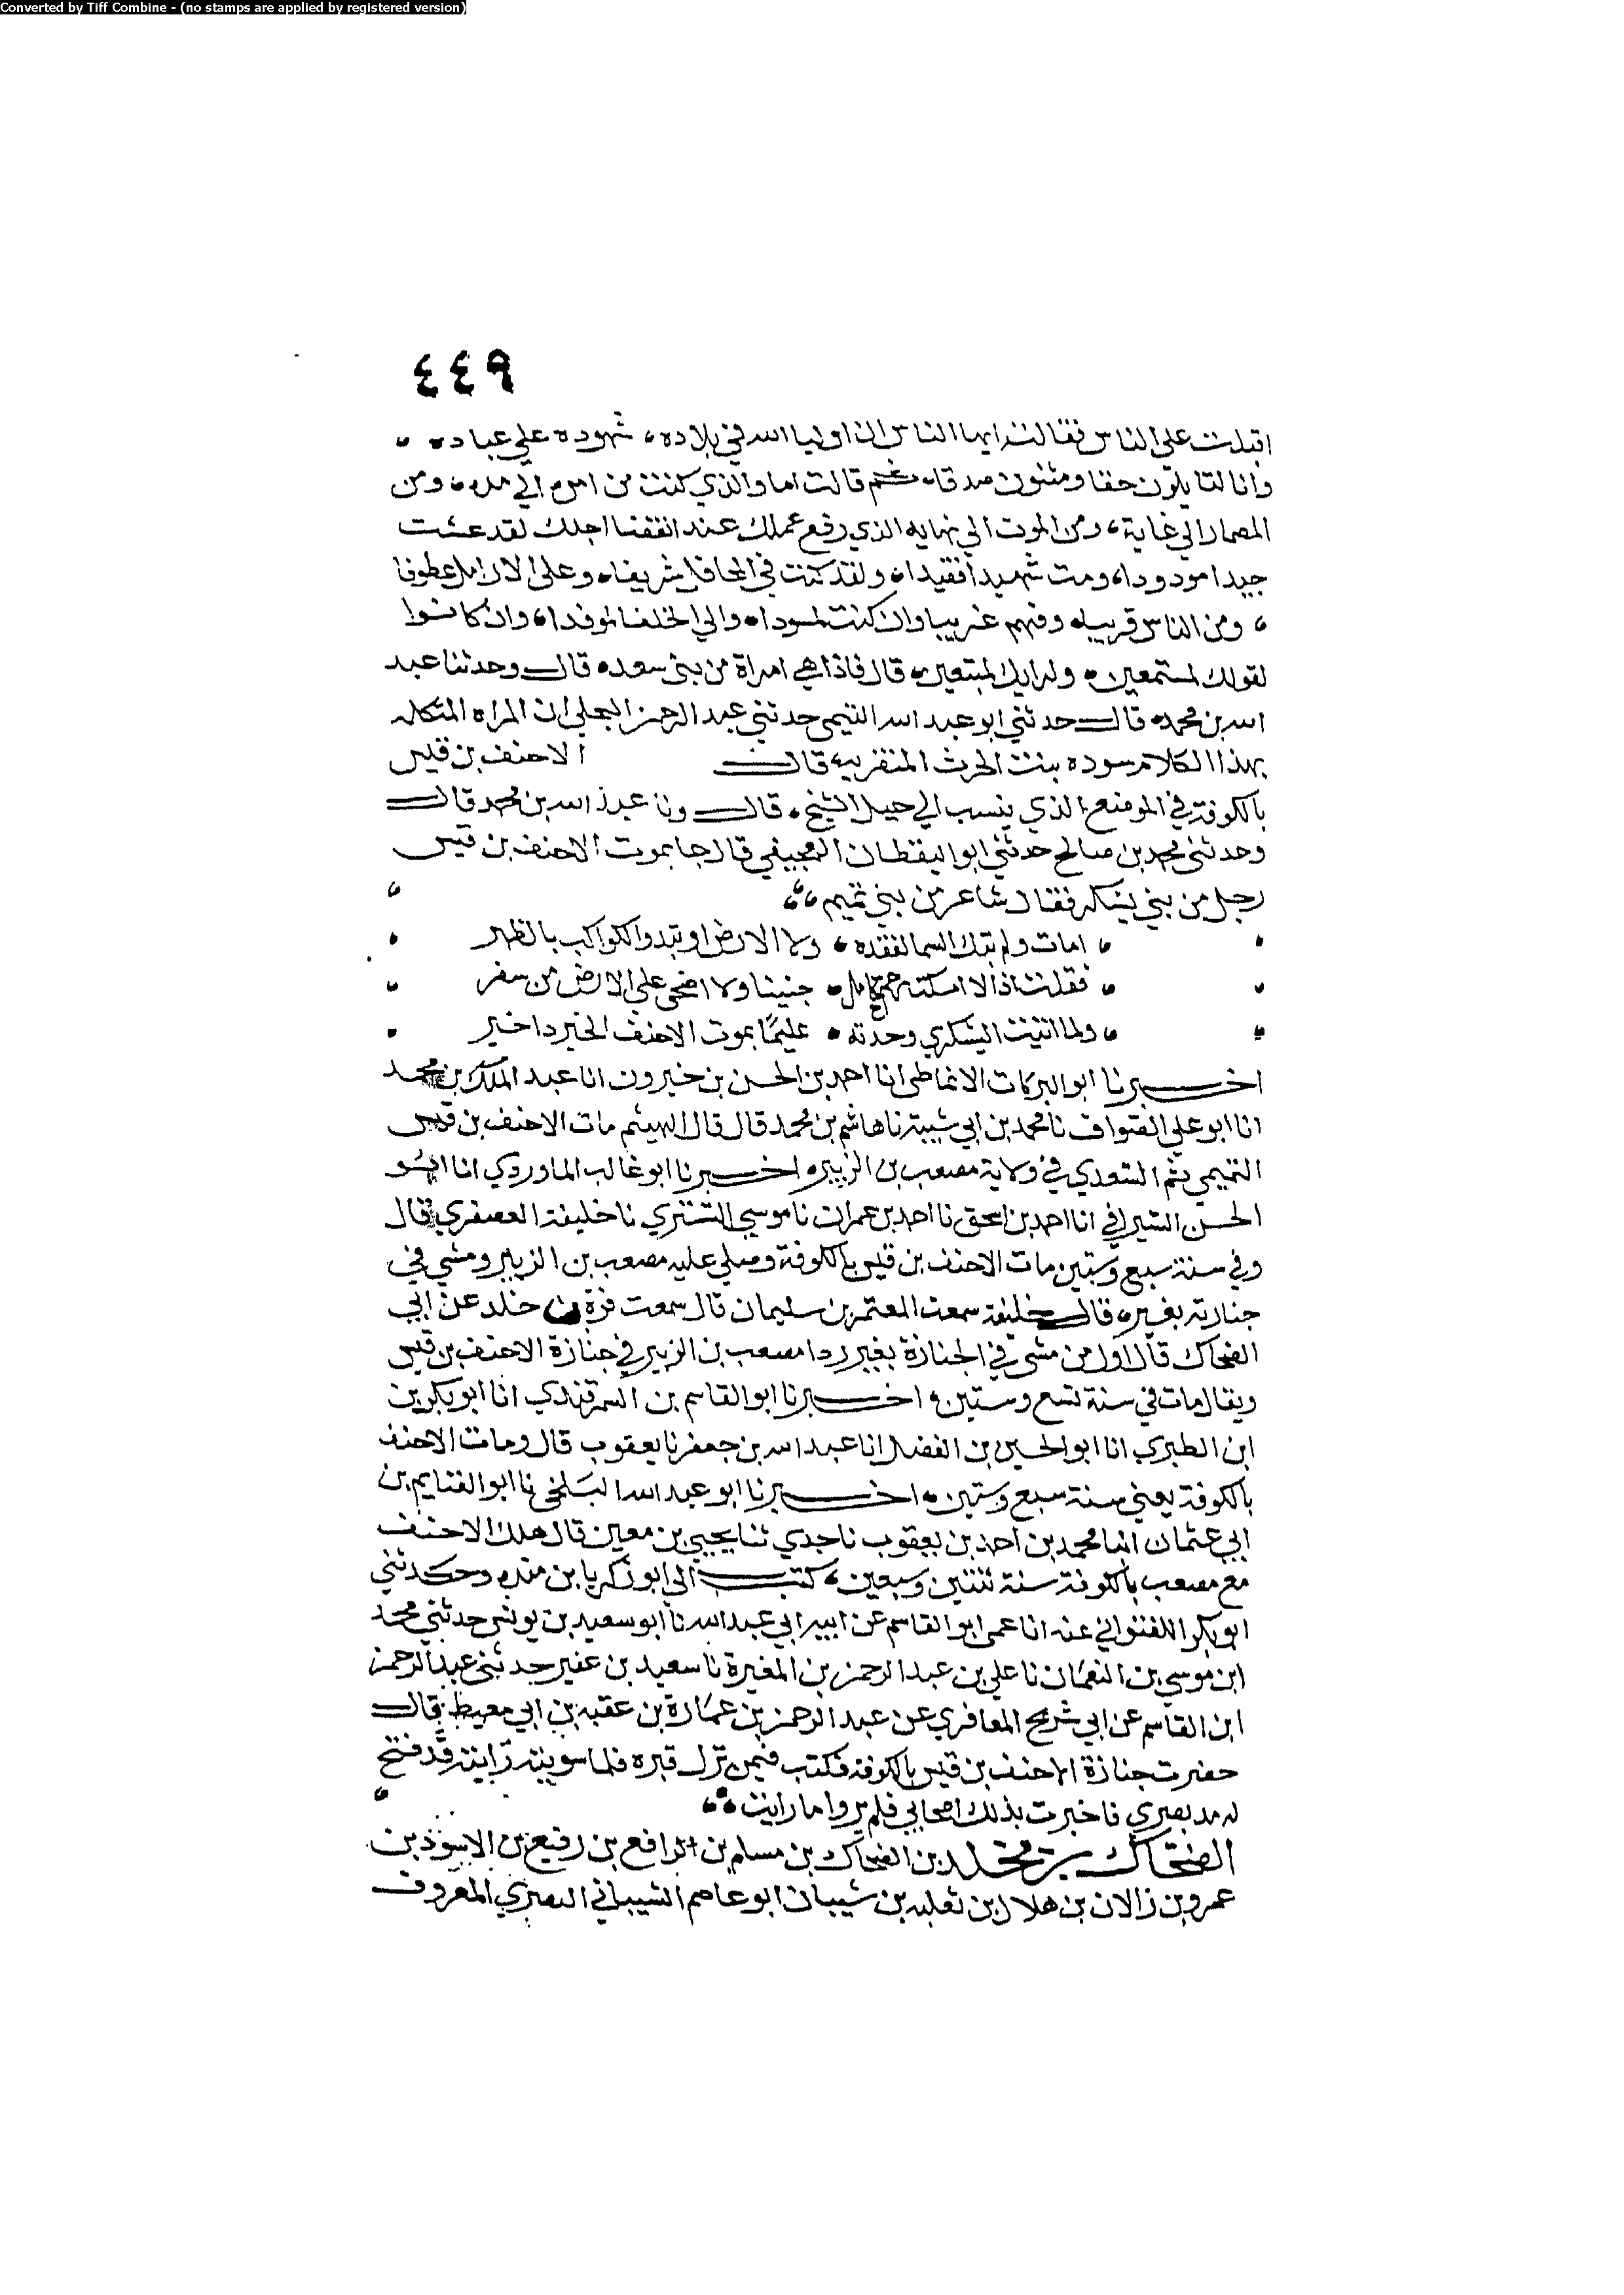 Converted by Tiff Combine - (no stamps are applied by registered version)
٤٤٩
اقبلت على الناس فقالت ايها الناس ان اوليا الله في بلاده، شهوده على عباده ،
وانا لقايلون حقا ومثنون صدقا، ثم قالت اما والذي كنت من امره الى مده، ومن
المضمار الى غاية، ومن الموت الى نهايه الذي رفع عملك عند انقضا اجلك لقد عشت
جيدا مودودا، ومت شهيدا فقيدا، ولقد كنت في المحافل شريفا، وعلى الارامل عطوفا
، ومن الناس قريبا، وفيهم غريبا وان كنت لمسودا، والى الخلفا لموفدا، وان كانوا
لقولك لمستمعين، ولرايك لمتبعين، قال فاذا هي امراة من بني سعد، قال وحدثنا عبد
الله بن محمد، قال حدثني ابو عبد الله التيمي حدثني عبد الرحمن البجلي ان المراه المتكلمه
بهذا الكلام سوده بنت الحرث المنقريه قال الاحنف بن قيس
بالكوفة في الموضع الذي ينسب الى الشيخ، قال ونا عبد الله بن محمد قال
وحدثني محمد بن صالح حدثني ابو اليقظان العجيفي قال جا بموت الاحنف بن قيس
رجل من بني يشكر فقال شاعر من بني تميم،، ،
، امات ولم تبك السما لفقده، ولا الارض او تبدوا الكواكب بالظهر ،
، فقلت اذا لا امسكت رحم حامل، جنينا ولا اضحى على الارض من سفر ،
، ولما اتيت اليشكري وحدته، عليما بموت الاحنف الخير دا خير ،
اخبرنا ابو البركات الانماطي انا احمد بن الحسن بن خيرون انا عبد الملك بن محمد
انا ابو علي الصواف نا محمد بن ابي شيبة نا هاشم بن محمد قال قال الهيثم مات الاحنف بن قيس
التميمي ثم السعدي في ولاية مصعب بن الزبير، اخبرنا ابو غالب الماوردي انا ابو
الحسن السيرافي انا احمد بن اسحق نا احمد بن عمران نا موسى التستري نا خليفة العصفري قال
وفي سنة سبع وستين مات الاحنف بن قيس بالكوفة وصلى عليه مصعب بن الزبير ومشى في
جنازته بغير، قال خليفة سمعت المعتمر بن سليمان قال سمعت قرة بن خلد عن ابي
الضحاك قال اول من مشى في الجنازة بغير ردا مصعب بن الزبير في جنازة الاحنف بن قيس
ويقال مات في سنة تسع وستين، اخبرنا ابو القاسم بن السمرقندي انا ابو بكر بن
ابن الطبري انا ابو الحسين بن الفضل انا عبد الله بن جعفر نا يعقوب قال ومات الاحنف
بالكوفة يعني سنة سبع وستين، اخبرنا ابو عبد الله البلخي نا ابو الغنايم بن
ابي عثمان انا محمد بن احمد بن يعقوب نا جدي ثنا يحيى بن معين قال هلك الاحنف
مع مصعب بالكوفة سنة ثنتين وسبعين، كتب الى ابو زكريا بن منده وحدثني
ابو بكر اللفتواني عنه انا عمى ابو القاسم عن ابيه ابي عبد الله نا ابو سعيد بن يونس حدثني محمد
ابن موسى بن النعمان نا علي بن عبد الرحمن بن المغيرة نا سعيد بن عفير حدثني عبد الرحمن
ابن القاسم عن ابي شريح المعافري عن عبد الرحمن بن عمارة بن عقبه بن ابي معيط قال
حضرت جنازة الاحنف بن قيس بالكوفة فكنت فيمن نزل قبره فلما سويته رايته قد فتح
له مد بصري فاخبرت بذلك اصحابي فلم يروا ما رايت،، ،
الضحاك بن مخلد بن الضحاك بن مسلم بن رافع بن رفيع بن الاسود بن
عمرو بن زالان بن هلال بن ثعلبه بن شيبان ابو عاصم الشيباني البصري المعروف